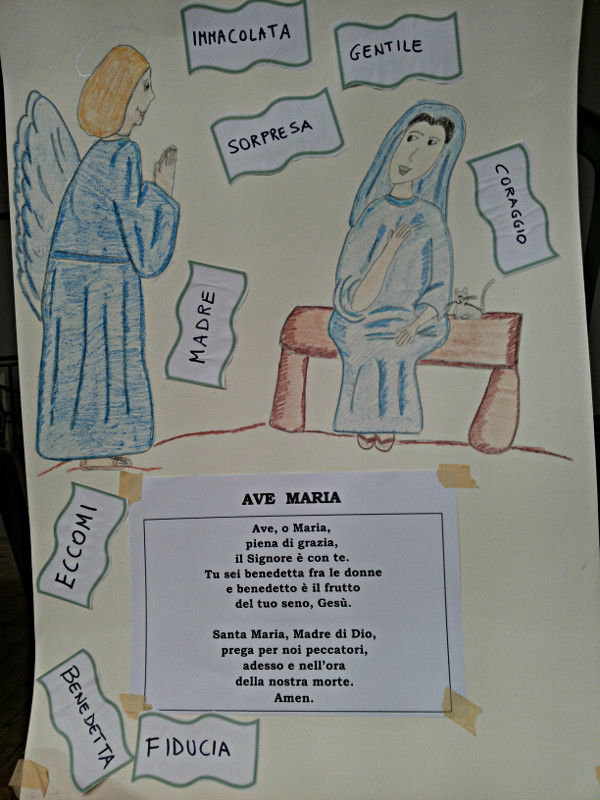 IMMACOLATA
GENTILE
SORPRESA
CORAGGIO
MADRE
ECCOMI
AVE MARIA
Ave, o Maria,
piena di grazia,
il Signore è con te.
Tu sei benedetta fra le donne
e benedetto è il frutto
del tuo seno, Gesù.
Santa Maria, Madre di Dio,
prega per noi peccatori,
adesso e nell'ora
della nostra morte.
Amen.
BENEDETTA
FIDUCIA